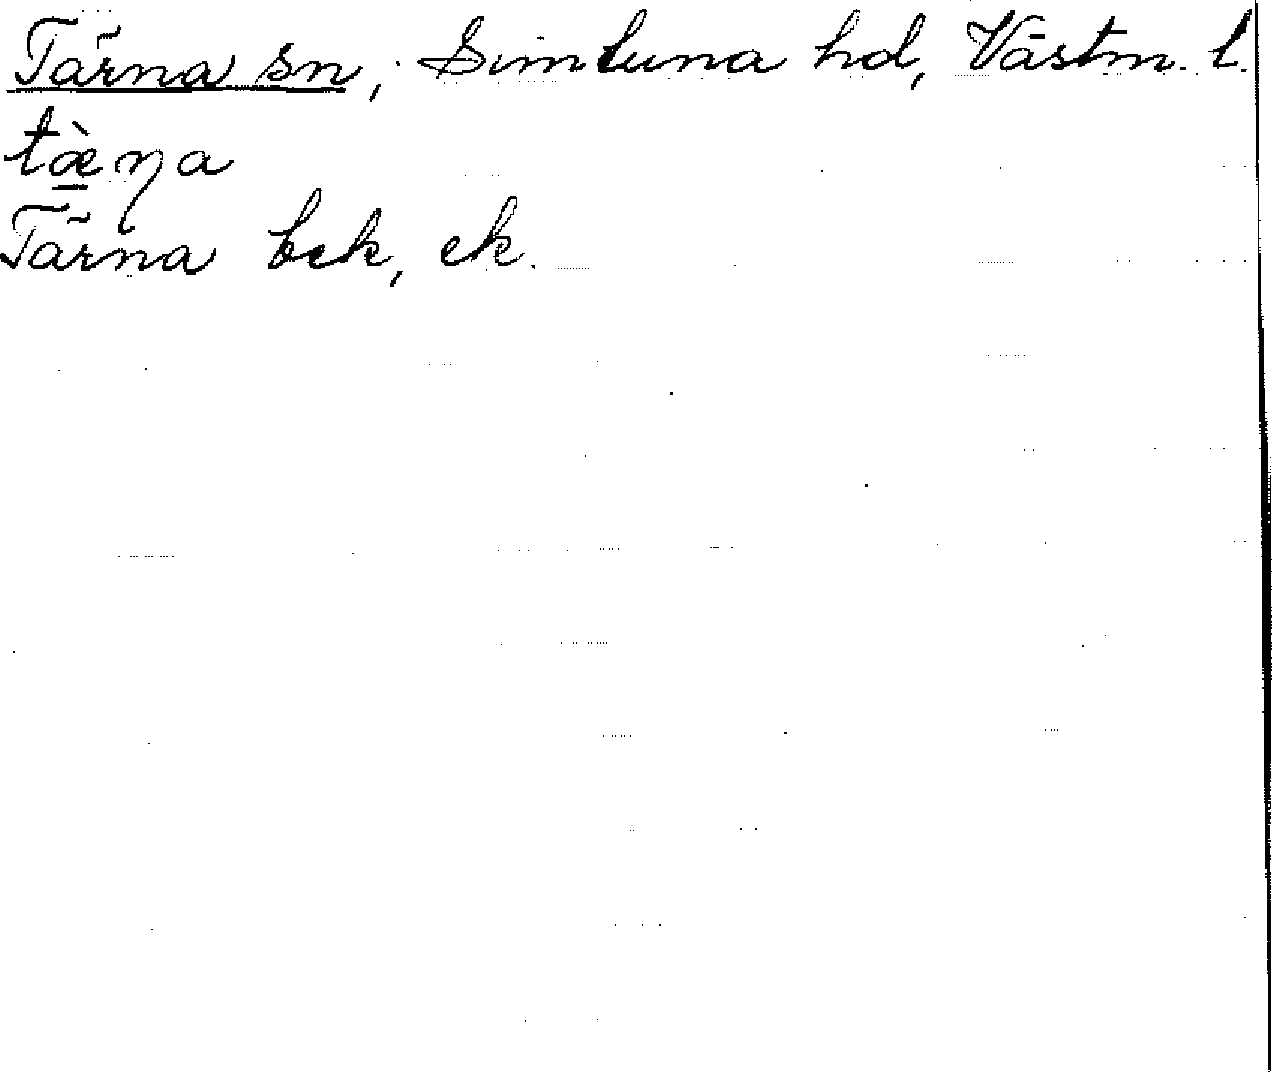 Tärna sn, Simtuna hd, Västm. l.
tæ̱̀ɳa
Tärna bek, ek.